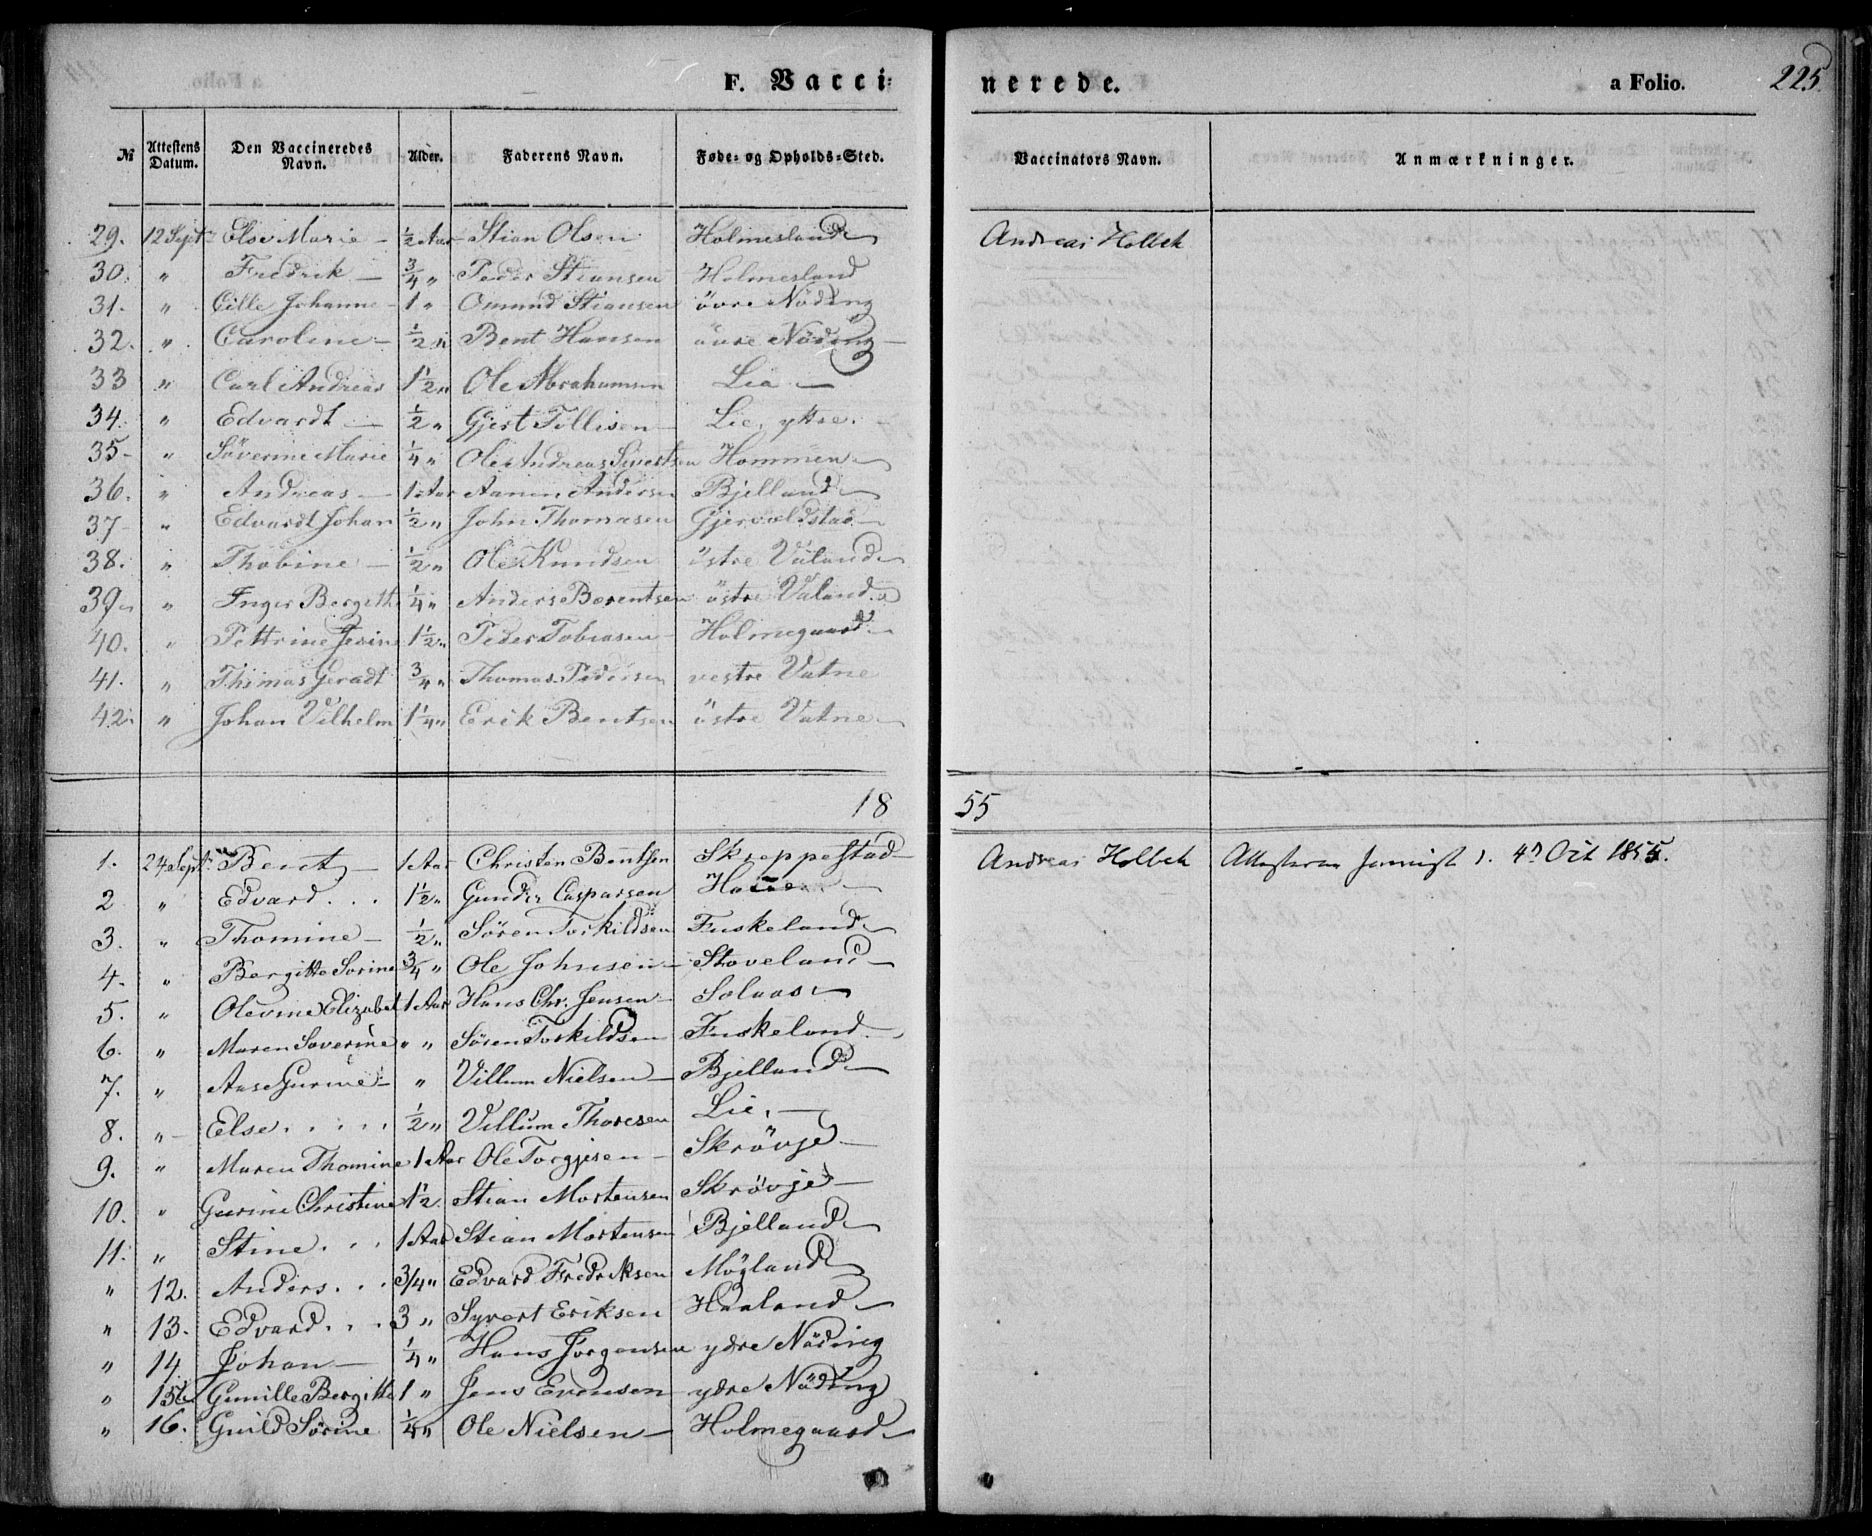 F. Vacci= nerede. a Folio. 225
№ Attestens Datum. Den Vaccineredes Navn. Alder. Faderens Navn. Føde= og Opholds=Sted. Vaccinators Navn. Anmærkninger.
29. 12 Sept Else Marie – ½ Aar Stian Olsen Holmesland Andreas Holbek
30. " Fredrik – ¾ " Peder Stiansen Holmesland
31. " Cille Johanne – 1 " Omund Stiansen övre Nöding
32. " Caroline – ½ " Bent Hansen övre Nöding –
33 " Carl Andreas 1½ " Ole Abrahamsen Lia –
34. " Edvardt – ½ " Gjert Tollisen – Lie, yttre.
35 – " Söverine Marie ¼ " Ole Andreas Sivertsen Hommen
36. " Andreas – 1 Aar Aanen Andersen Bjelland
37 – " Edvardt Johan ½ " John Thomasen Gjervoldstad –
38. " Thobine – ½ " Ole Knudsen östre Valand
39 " Inger Bergithe ¼ " Anders Berentsen östre Valand
40. " Pettrine Jesine 1½ " Peder Tobiasen – Holmegaard –
41. " Thomas Geradt ¾ " Thomas Pedersen vestre Vatne
42. " Johan Vilhelm 1¼ " Erik Bentsen östre Vatne
18 55
1. 24 Sept. Bent – 1 Aar Christen Bentsen Skreppestad – Andreas Holbek 4de Oct 1855.
2 " Edvard . . . 1½ " Gunder Casparsen
3. " Thomine – ½ " Sören Torkildsen Fuskeland
4. " Bergitte Sorine ¾ " Ole Johnsen – Stoveland –
5. " Olevine Elizabet 1 Aar Hans Chr. Jensen – Solaas
6. " Maren Saverine " " Sören Torkildsen Fuskeland –
7. " Aase Gurine – " Villum Nielsen – Bjelland
8. " – Else . . . . . ½ " Villum Thoresen Lie. –
9. " Maren Thomine 1 Aar Ole Torgjesen – Skrövje –
10. " Gurine Christine 1½ Stian Mortensen Skrövje –
11. " Stine . . . 1 Aar Stian Mortensen Bjelland
" 12. Anders . . . 3/4 " Edvard Fredriksen Mögland
" 13. Edvard . . . 3 " Syvert Eriksen Haaland
" 14 Johan – ¼ " Hans Jörgensen ydre Nöding
" 15 Gunille Bergitte 1 " Jens Evensen – ydre Nöding
" 16. Guild Sörine ¼ " Ole Nielsen – Holmegaard